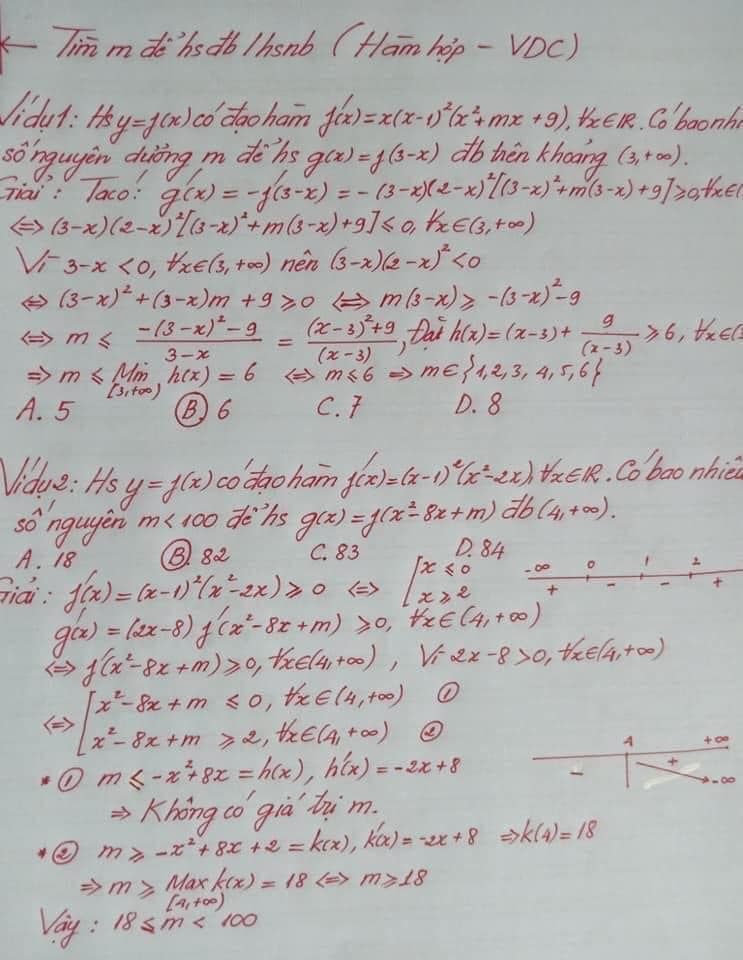 ← Tìm m để hs đb / hsnb (Hàm hợp - VDC)
Ví dụ 1: Hs y = f(x) có đạo hàm f'(x) = x(x-1)²(x²+mx+9), ∀x∈ℝ. Có bao nhi
số nguyên dương m để hs g(x) = f(3-x) đb trên khoảng (3,+∞).
Giải: Ta có: g'(x) = -f'(3-x) = -(3-x)(2-x)²[(3-x)²+m(3-x)+9] ≥ 0, ∀x∈(
⇔ (3-x)(2-x)²[(3-x)²+m(3-x)+9] ≤ 0, ∀x∈(3,+∞)
Vì 3-x < 0, ∀x∈(3,+∞) nên (3-x)(2-x)² < 0
⇔ (3-x)² + (3-x)m + 9 ≥ 0 ⇔ m(3-x) ≥ -(3-x)² - 9
⇔ m ≤ (-(3-x)² - 9)/(3-x) = ((x-3)² + 9)/(x-3), Đặt h(x) = (x-3) + 9/(x-3) ≥ 6, ∀x∈(3
⇒ m ≤ Min h(x) = 6 ⇔ m ≤ 6 ⇒ m ∈ {1, 2, 3, 4, 5, 6}
[3,+∞)
A. 5 B. 6 C. 7 D. 8
Ví dụ 2: Hs y = f(x) có đạo hàm f'(x) = (x-1)²(x²-2x), ∀x∈ℝ. Có bao nhiêu
số nguyên m < 100 để hs g(x) = f(x²-8x+m) đb (4,+∞).
A. 18 B. 82 C. 83 D. 84
Giải: f'(x) = (x-1)²(x²-2x) ≥ 0 ⇔ [ x ≤ 0
x ≥ 2
-∞ 0 1 2
+ - - +
g'(x) = (2x-8) f'(x²-8x+m) ≥ 0, ∀x∈(4,+∞)
⇔ f'(x²-8x+m) ≥ 0, ∀x∈(4,+∞), Vì 2x-8 > 0, ∀x∈(4,+∞)
⇔ [ x²-8x+m ≤ 0, ∀x∈(4,+∞) ①
x²-8x+m ≥ 2, ∀x∈(4,+∞) ②
* ① m ≤ -x²+8x = h(x), h'(x) = -2x+8
4 +∞
- + -∞
⇒ Không có giá trị m.
* ② m ≥ -x²+8x+2 = k(x), k'(x) = -2x+8 ⇒ k(4) = 18
⇒ m ≥ Max k(x) = 18 ⇔ m ≥ 18
[4,+∞)
Vậy: 18 ≤ m < 100